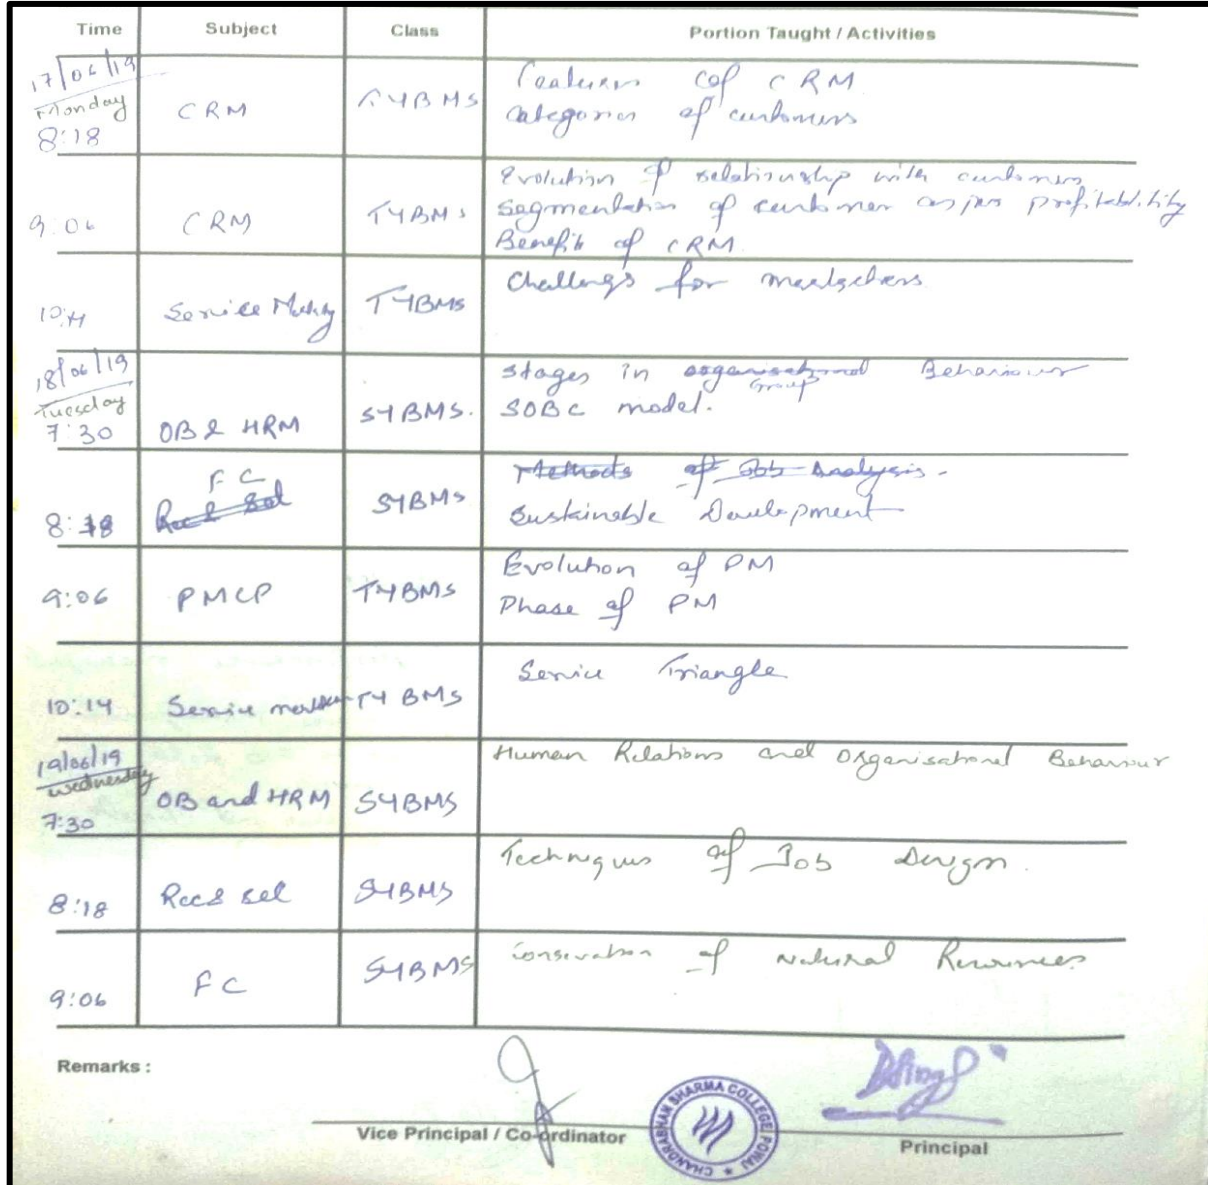 Time Subject Class Portion Taught / Activities
17/06/19
Monday
8:18 CRM TYBMS Features of CRM
Categories of customers
9:06 CRM TYBMS Evolution of relationship with customers
Segmentation of customer as per profitability
Benefit of CRM
Service TYBMS for
18/06/19
Tuesday
7:30 OB & HRM SYBMS. Stages in organisational Behaviour
Group
SOBC model.
FC Methods of Job Analysis.
8:18 Rec & Sel SYBMS Sustainable Development
9:06 PMCP TYBMS Evolution of PM
Phase of PM
10:14 Service TYBMS Service Triangle
19/06/19
Wednesday
7:30 OB and HRM SYBMS Human Relations and Organisational Behaviour
8:18 Rec & Sel SYBMS Techniques of Job Design.
9:06 FC SYBMS Conservation of Natural Resources
Remarks :
Vice Principal / Co-ordinator
CHANDRABHAN SHARMA COLLEGE POWAI
Principal